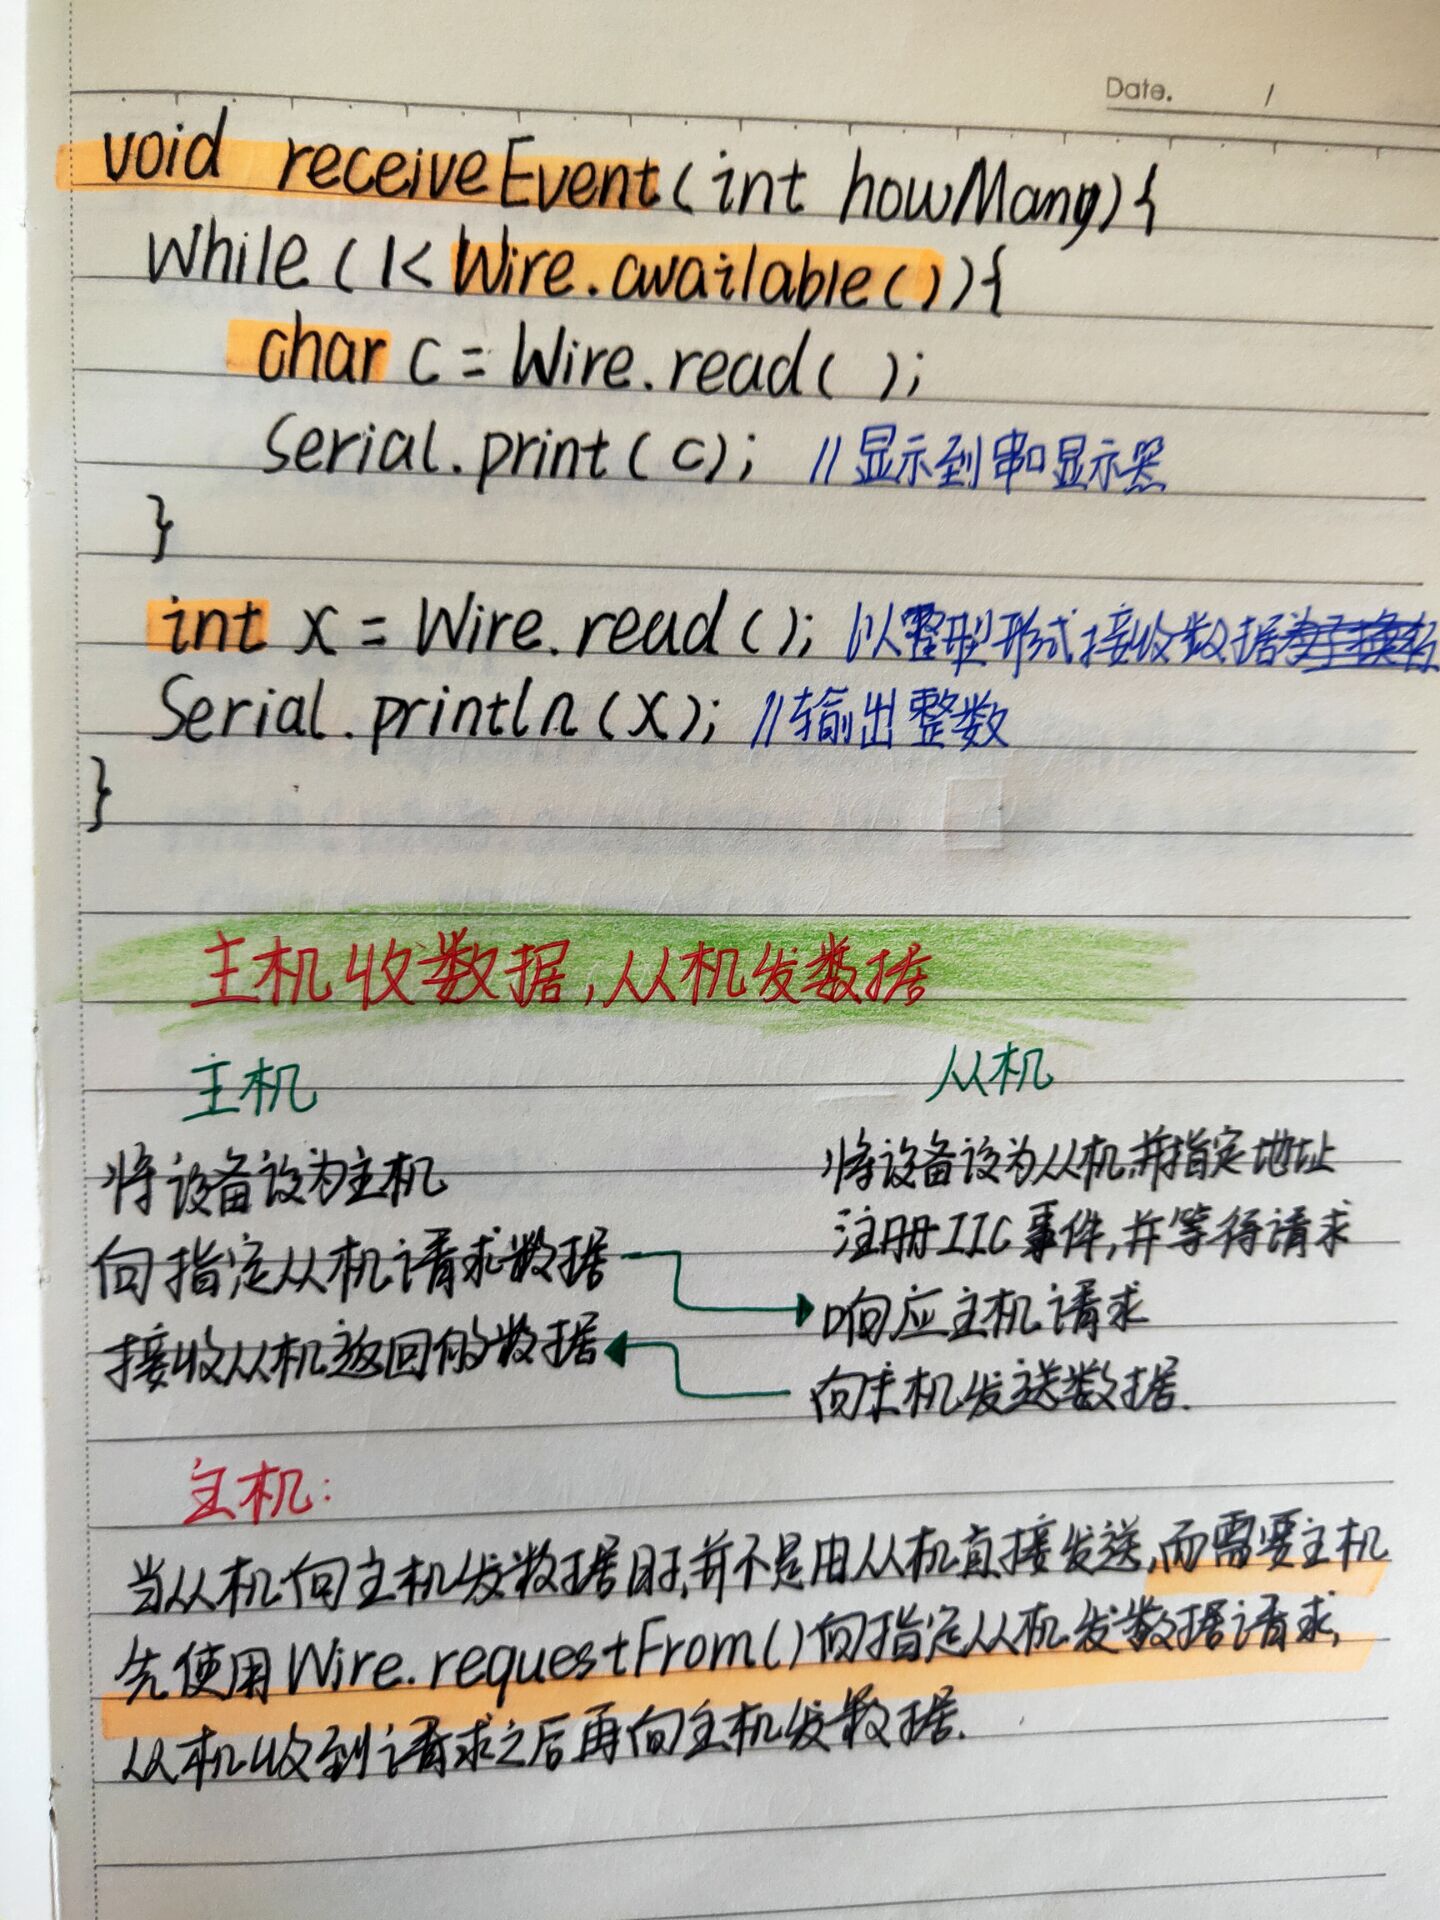 Date. /
void receiveEvent(int howMany){
while(1<Wire.available()){
char c = Wire.read( );
Serial.print(c); //显示到串口显示器
}
int x = Wire.read(); //以整型形式接收数据
Serial.println(x); //输出整数
}
主机收数据,从机发数据
主机 从机
将设备设为主机 将设备设为从机,并指定地址
向指定从机请求数据 注册IIC事件,并等待请求
响应主机请求
接收从机返回的数据
向主机发送数据.
主机:
当从机向主机发数据时,并不是由从机直接发送,而需要主机
先使用Wire.requestFrom()向指定从机发数据请求,
从机收到请求之后再向主机发数据.